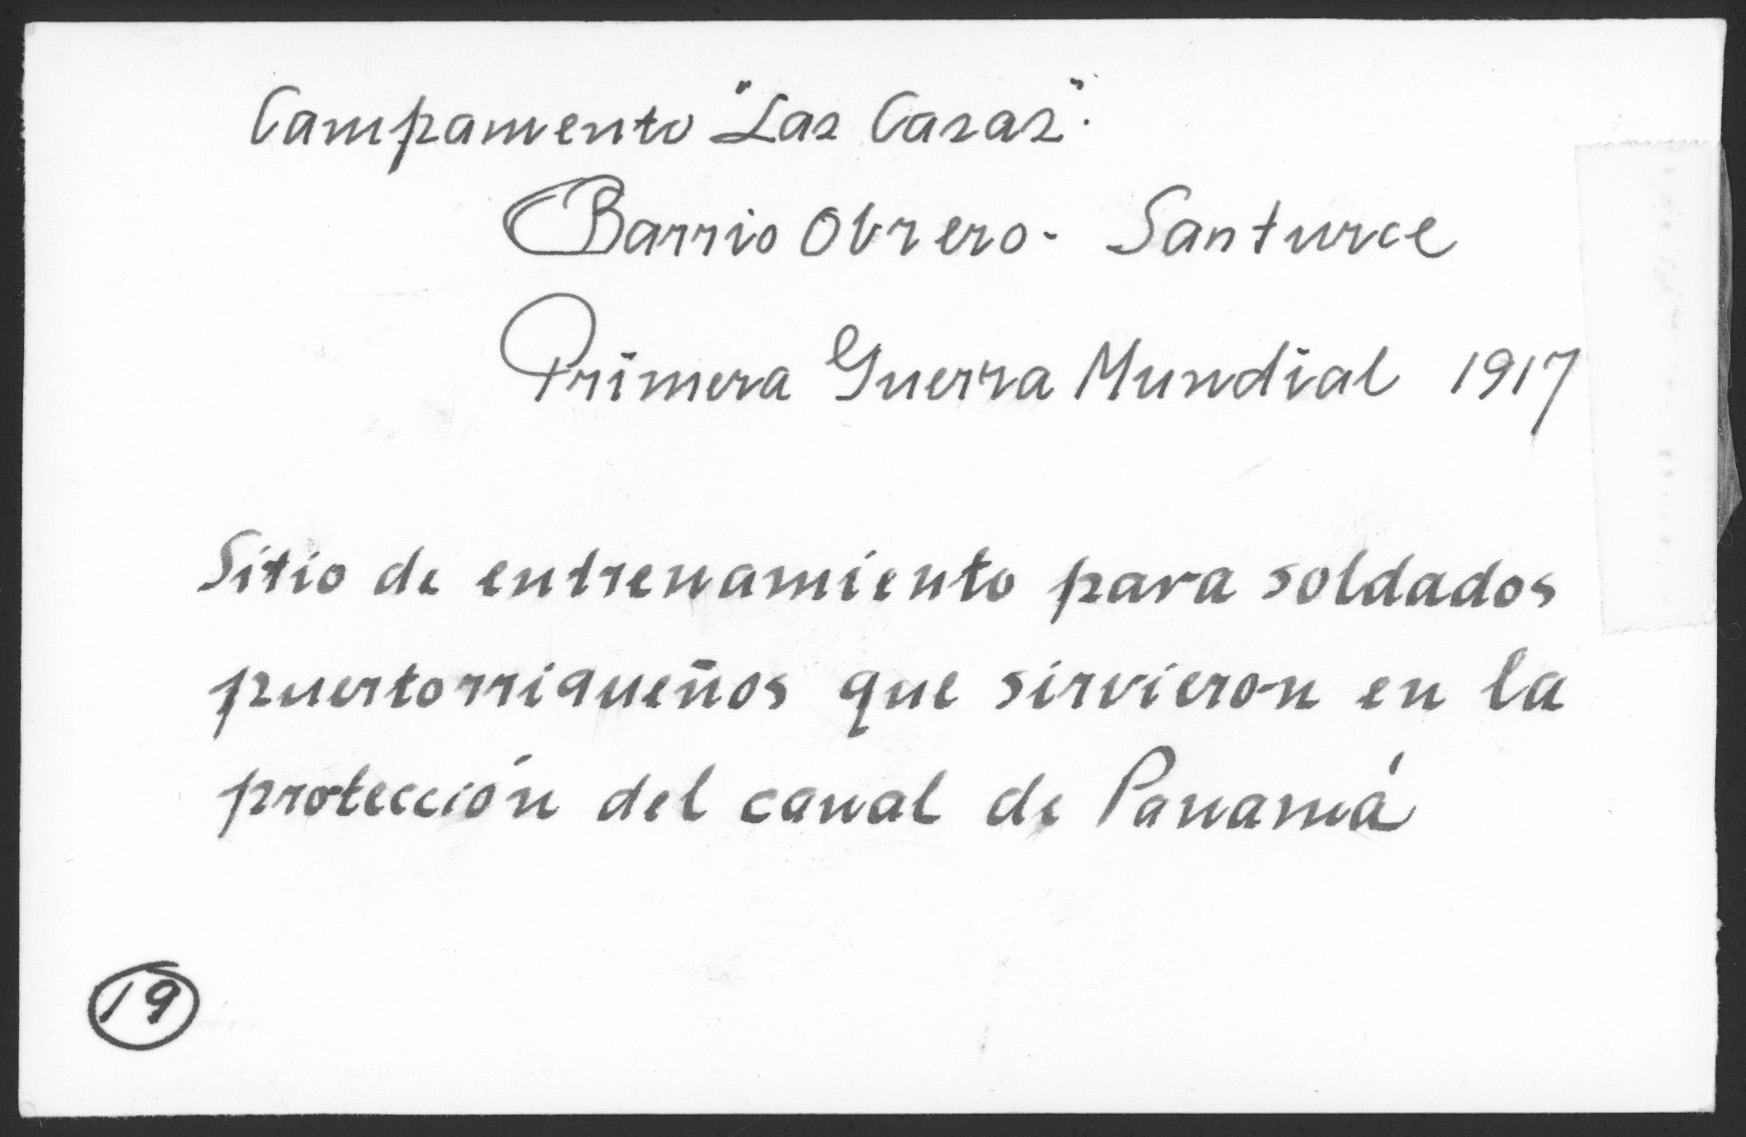 Campamento "Las Casas".
Barrio Obrero - Santurce
Primera Guerra Mundial 1917
Sitio de entrenamiento para soldados
puertorriqueños que sirvieron en la
protección del canal de Panamá
19